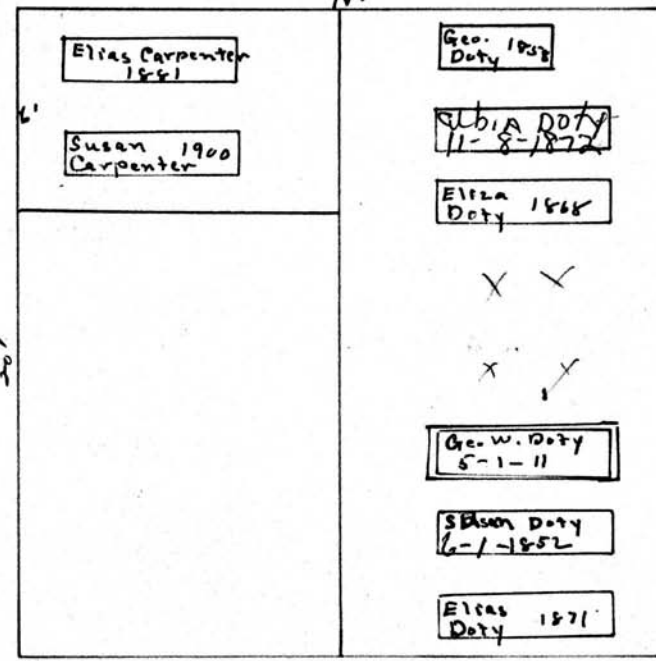 N.
Elias Carpenter
1881
6'
Susan 1900
Carpenter
20'
Geo. 1858
Doty
Albia Doty
11-8-1872
Eliza
Doty 1868
X X
X X
Geo. W. Doty
5-1-11
Susan Doty
6-1-1852
Elias
Doty 1871